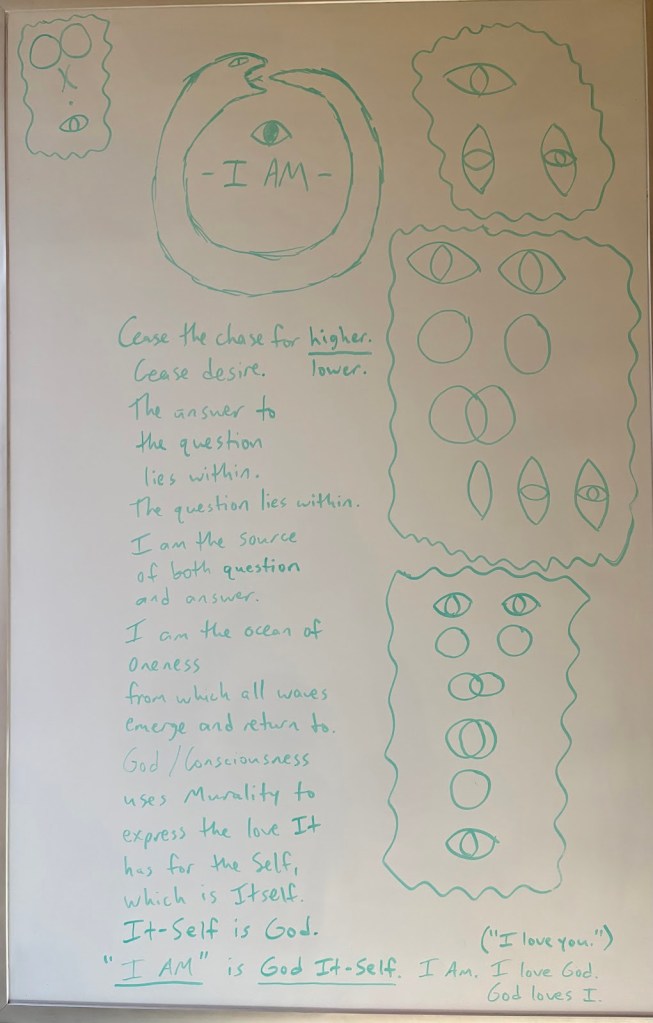 - I AM -
Cease the chase for higher.
Cease desire. lower.
The answer to
the question
lies within.
The question lies within.
I am the source
of both question
and answer.
I am the ocean of
oneness
from which all waves
emerge and return to.
God/Consciousness
uses Murality to
express the love It
has for the Self,
which is Itself.
It-Self is God.
("I love you.")
"I AM" is God It-Self. I Am. I love God.
God loves I.